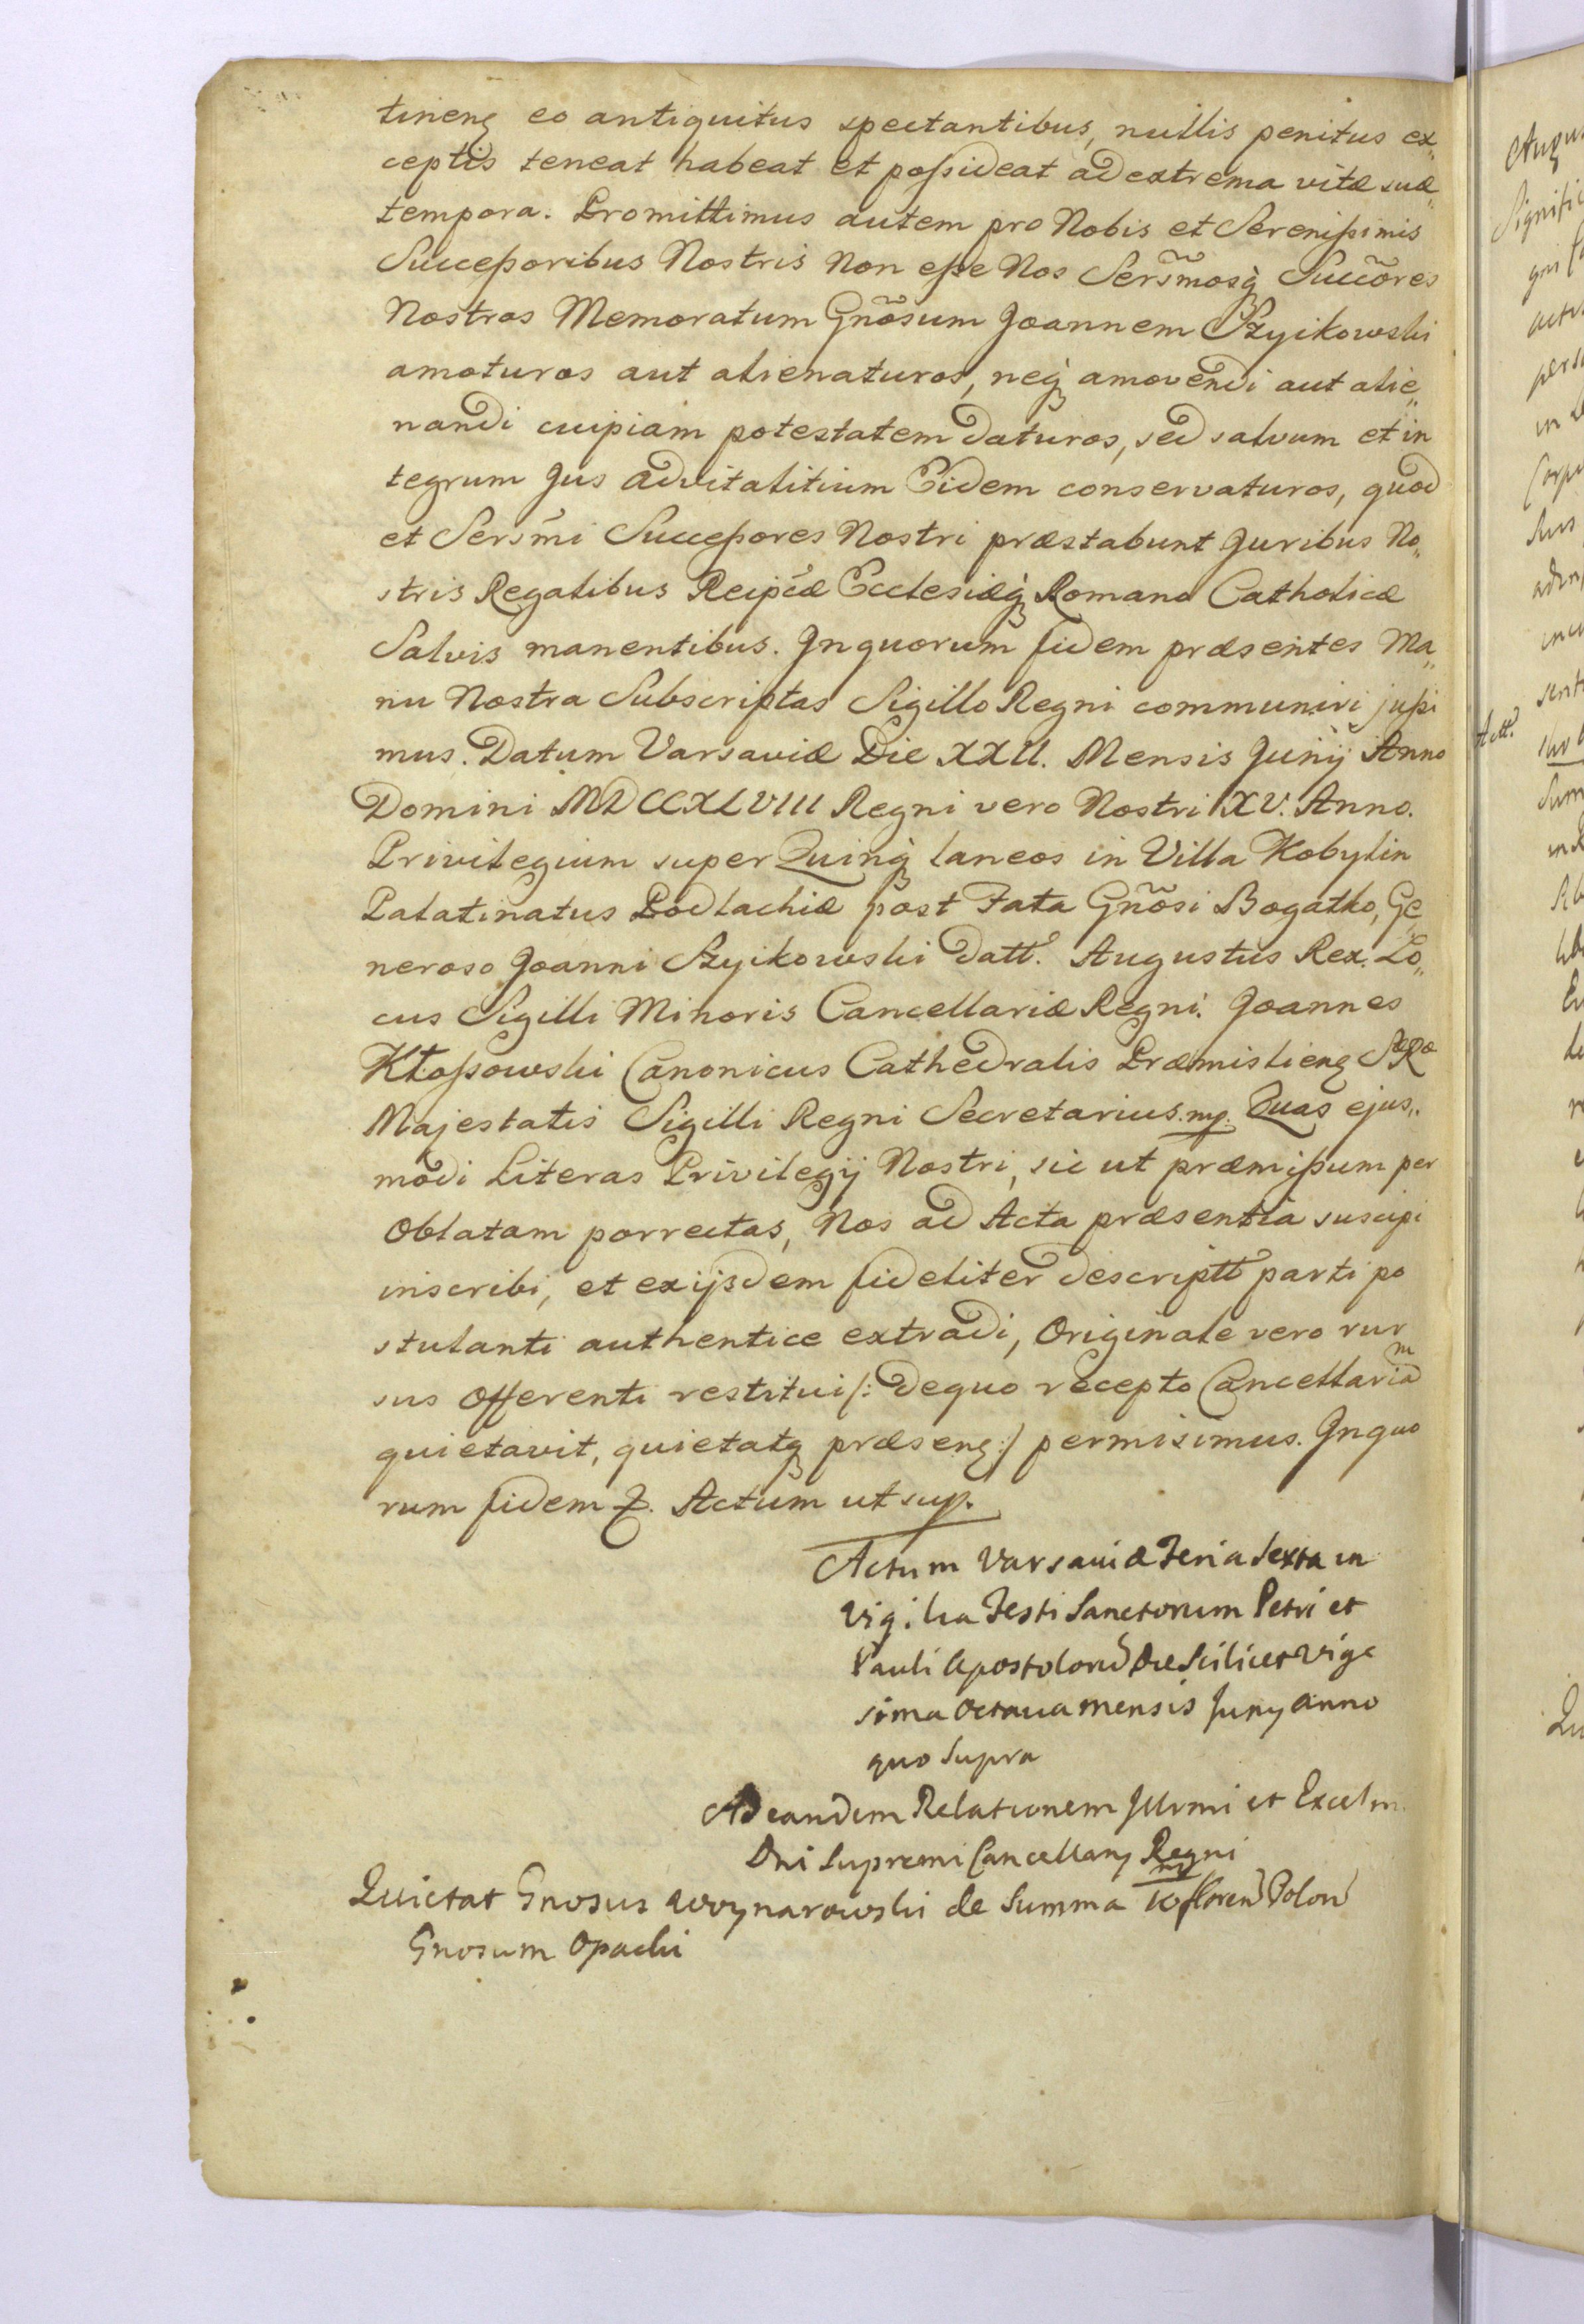 tineng eo antiquitus spectantibus, nullis penitus ex„
ceptis teneat habeat et poſsideat ad extrema vitæ suæ
tempora. Promittimus autem pro Nobis et Sereniſsimis
Succeſsoribus Nostris Non eſse Nos Sers̃mosq̢ Succõres
Nostros Memoratum Gnõsum Joannem Szyikowski
amoturos aut alienaturos, neq̢ amovendi aut alie„
nandi cuipiam potestatem daturos, sed salvum et in
tegrum Jus Advitalitium Eidem conservaturos, quod
et Sersm̃i Succeſsores Nostri præstabunt Juribus No„
stris Regalibus Reipcæ Ecclesiæq̢ Romano Catholicæ
Salvis manentibus. Jnquorum fidem præsentes Ma„
nu Nostra Subscriptas Sigillo Regni communiri juſsi
mus. Datum Varsaviæ Die XXII. Mensis Junij Anno
Domini MDCCXLVIII Regni vero Nostri XV. Anno.
Privilegium super Quinq̢ laneos in Villa Kobylin
Palatinatus Podlachiæ post Fata Gnõsi Bogatko, Ge
neroso Joanni Szyikowski datt. Augustus Rex. Lo„
cus Sigilli Minoris Cancellariæ Regni. Joannes
Kłoſsowski Canonicus Cathedralis Præmislieng SæRæ
Majestatis Sigilli Regni Secretarius. mp. Quas ejus„
modi Literas Privilegij Nostri, sic ut præmiſsum per
Oblatam porrectas, Nos ad Acta præsentia suscipi
inscribi, et ex ijsdem fideliter descriptt parti po
stulanti authentice extradi, Originale vero rur
sus Offerenti restitui /: dequo recepto Cancellariam
quietavit, quietatq̢ præseng :/ permisimus. Jnquo
rum fidem &. Actum ut sup.
Actum Varsauiæ Feria Sexta in
Vigilia Festi Sanctorum Petri et
Pauli Apostolorũ Die Scilicet Vige
sima Octaua mensis Juny Anno
quo Supra
Ad eandem Relationem Jllrmi et Excelm.
Dni Supremi Cancellarij Regni
Quietat Gnosus Woynarowski de Summa 10/m floren Polon
Gnosum Opacki